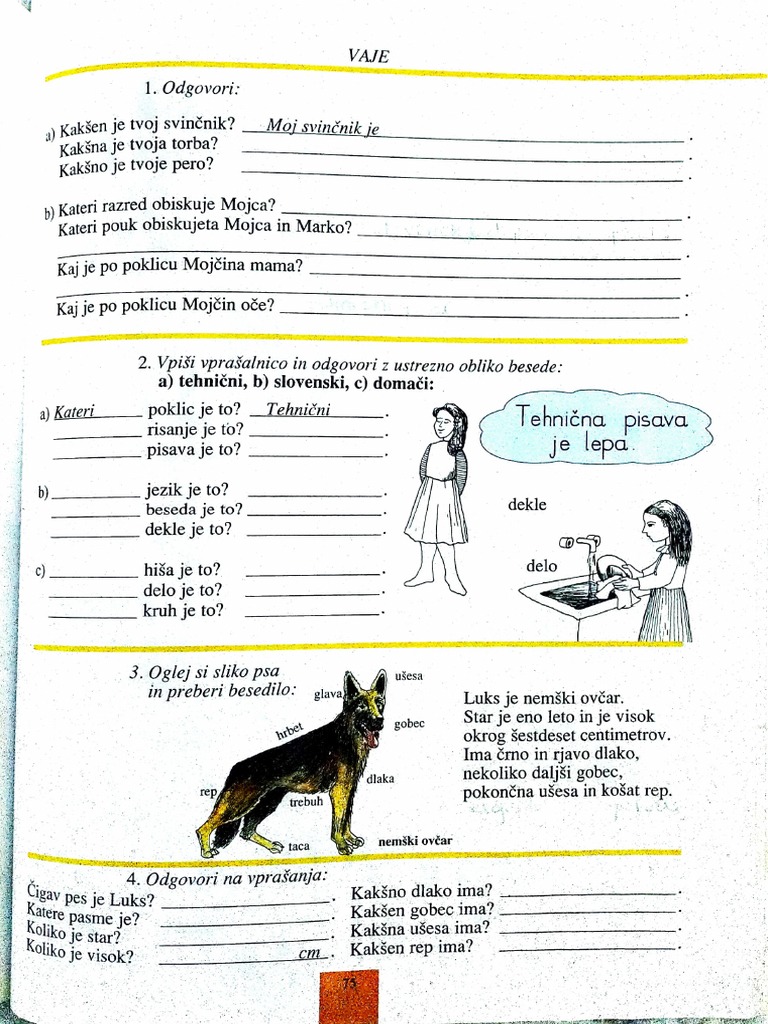 VAJE
1. Odgovori:
a) Kakšen je tvoj svinčnik? Moj svinčnik je .
Kakšna je tvoja torba? .
Kakšno je tvoje pero? .
b) Kateri razred obiskuje Mojca? .
Kateri pouk obiskujeta Mojca in Marko?
.
Kaj je po poklicu Mojčina mama?
.
Kaj je po poklicu Mojčin oče? .
2. Vpiši vprašalnico in odgovori z ustrezno obliko besede:
a) tehnični, b) slovenski, c) domači:
a) Kateri poklic je to? Tehnični .
risanje je to? .
pisava je to? .
Tehnična pisava
je lepa.
b) jezik je to? .
beseda je to? .
dekle je to? .
dekle
c) hiša je to? .
delo je to? .
kruh je to? .
delo
3. Oglej si sliko psa
in preberi besedilo:
ušesa
glava
gobec
hrbet
dlaka
rep
trebuh
taca
nemški ovčar
Luks je nemški ovčar.
Star je eno leto in je visok
okrog šestdeset centimetrov.
Ima črno in rjavo dlako,
nekoliko daljši gobec,
pokončna ušesa in košat rep.
4. Odgovori na vprašanja:
Čigav pes je Luks? .
Katere pasme je? .
Koliko je star? .
Koliko je visok? cm .
Kakšno dlako ima? .
Kakšen gobec ima? .
Kakšna ušesa ima? .
Kakšen rep ima? .
75